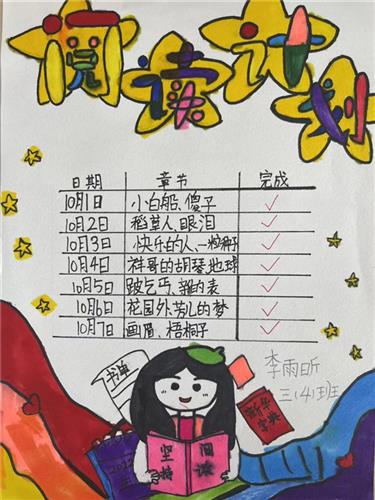 阅读计划
日期 章节 完成
10月1日 小白船、傻子 ✓
10月2日 稻草人、眼泪 ✓
10月3日 快乐的人、一粒种子 ✓
10月4日 祥哥的胡琴、地球 ✓
10月5日 跛乞丐、 的表 ✓
10月6日 花园外、芳儿的梦 ✓
10月7日 画眉、梧桐子 ✓
李雨昕
三(4)班
书单
新华
字典
坚持
阅读
2022